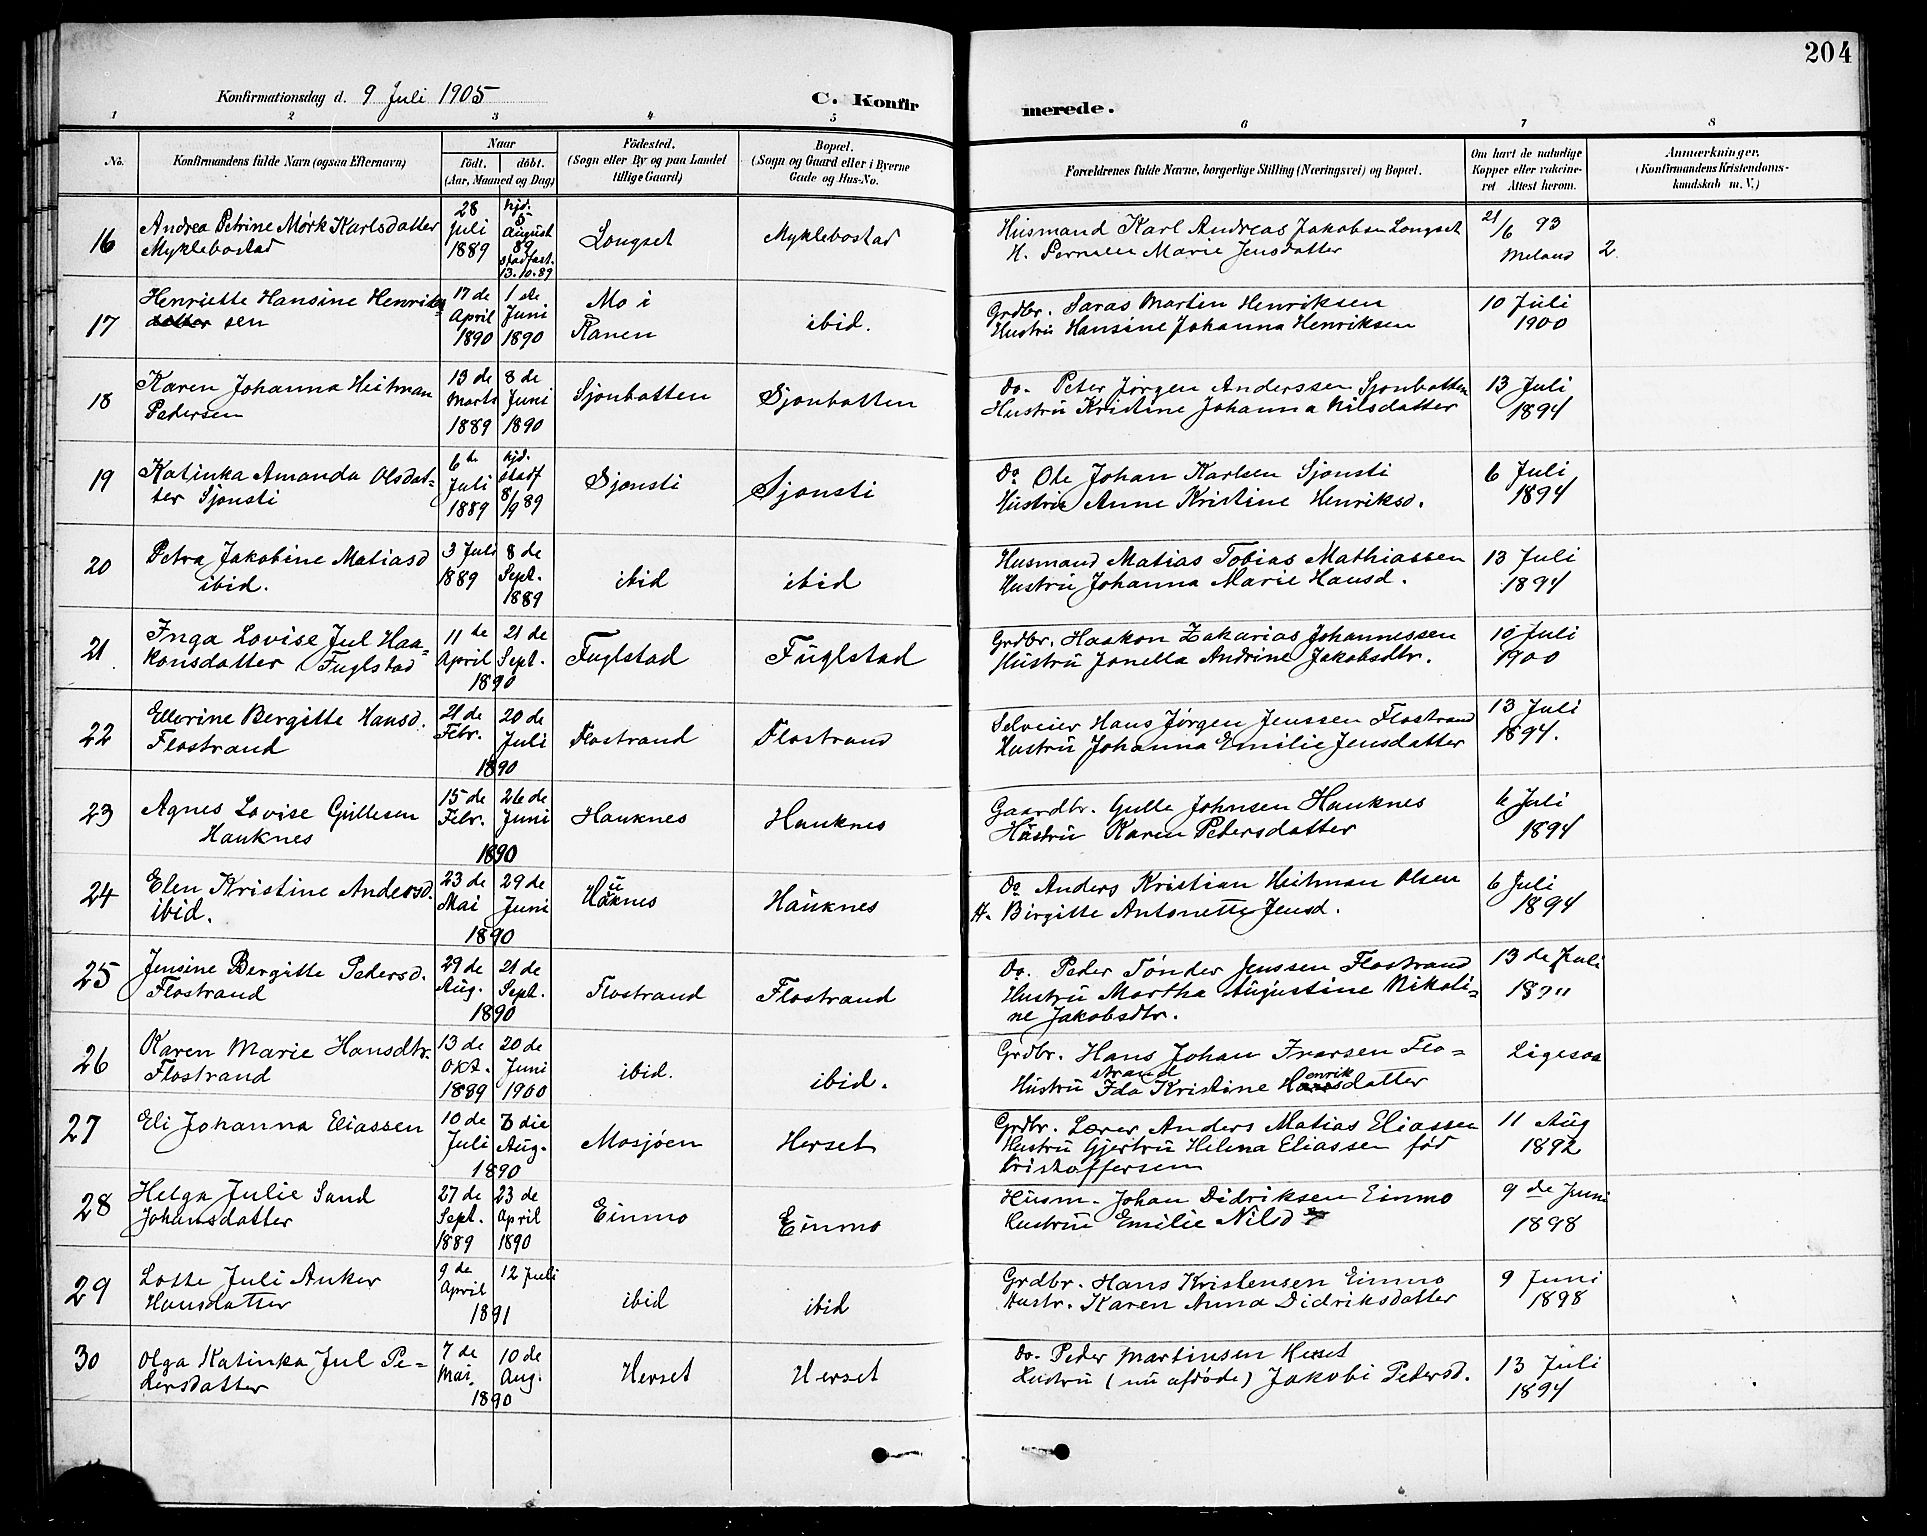 204
Konfirmationsdag d. 9 Juli 1905
C. Konfir
merede.
1 2 3 4 5 6 7 8
No.
Konfirmandens fulde Navn (ogsaa Efternavn)
Naar
födt. döbt.
(Aar, Maaned og Dag)
Födested.
(Sogn eller By og paa Landet
tillige Gaard)
Bopæl.
(Sogn og Gaard eller i Byerne
Gade og Hus-No.
Forældrenes fulde Navne, borgerlige Stilling (Næringsvei) og Bopæl.
Om havt de naturlige
Kopper eller vakcine-
ret Attest herom.
Anmærkninger,
(Konfirmandens Kristendoms-
kundskab m. V.)
16
Andrea Petrine Mørk Karlsdatter
Myklebostad
28
Juli
1889
hjd.
5
August
89
stadfæst.
13.10.89
Longset
Myklebostad
Husmand Karl Andreas Jakobsen Longset
H. Pernille Marie Jensdatter
21/6 93
Meland
2
17
Henriette Hansine Henrik
datter sen
17 de
April
1890
1 ste
Juni
1890
Mo i
Ranen
ibid.
Grdbr. Saras Martin Henriksen
Hustru Hansine Johanna Henriksen
10 Juli
1900
18
Karen Johanna Heitman
Pedersen
13 de
Marts
1889
8 de
Juni
1890
Sjonbotten
Sjonbotten
Do. Peter Jørgen Anderssen Sjonbotten
Hustru Kristine Johanna Nilsdatter
13 Juli
1894
19
Katinka Amanda Olsdat-
ter Sjonsti
6 te
Juli
1889
hjd.
stadf
8/9 89
Sjonsti
Sjonsti
Do Ole Johan Karlsen Sjonsti
Hustru Anne Kristine Henriksd.
6 Juli
1894
20
Petra Jakobine Matiasd
ibid.
3 Juli
1889
8 de
Sept.
1889
ibid
ibid
Husmand Matias Tobias Mathiassen
Hustru Johanna Marie Hansd.
13 Juli
1894
21
Inga Lovise Jul Haa-
konsdatter Fuglstad
11 de
April
21 de
Sept.
1890
Fuglstad
Fuglstad
Grdbr. Haakon Zakarias Johannessen
Hustru Jonella Andrine Jakobsdtr.
10 Juli
1900
22
Ellerine Bergitte Hansd.
Flostrand
21 de
Febr.
20 de
Juli
1890
Flostrand
Flostrand
Selveier Hans Jørgen Jenssen Flostrand
Hustru Johanna Emilie Jensdatter
13 Juli
1894.
23
Agnes Lovise Gullesen
Hauknes
15 de
Febr.
26 de
Juni
1890
Hauknes
Hauknes
Gaardbr. Gulle Johnsen Hauknes
Hustru Karen Petersdatter
6 Juli
1894
24
Elen Kristine Andersd.
ibid.
23 de
Mai
29 de
Juni
1890
Hauknes
Hauknes
Do Anders Kristian Heitman Olsen
H. Birgitte Antonette Jensd.
6 Juli
1894
25
Jensine Bergitte Pedersd.
Flostrand
29 de
Aug.
21 de
Sept.
1890
Flostrand
Flostrand
Do. Peder Tønder Jenssen Flostrand
Hustru Martha Augustine Nikoli-
ne Jakobsdtr.
13 de Juli
26
Karen Marie Hansdtr.
Flostrand
13 de
Okt.
1889
20 de
Juni
1900
ibid.
ibid.
Grdbr. Hans Johan Ivarsen Flo-
strand
Hustru Ida Kristine Henriksdatter
Ligesaa
27
Eli Johanna Eliassen
10 de
Juli
die
Aug.
1890
Mosjøen
Herset
Grdbr. Lærer Anders Matias Eliassen
Hustru Gjertru Helena Eliassen fød
Kristoffersen
11 Aug
1892
28
Helga Julie Sand
Johansdatter
27 de
Sept.
1889
23 de
April
1890
Einmo
Einmo
Husm. Johan Didriksen Einmo
Hustru Emilie Nilsd
9 de Juni
1898
29
Lotte Juli Anker
Hansdatter
9 de
April
12 Juli
1891
ibid
ibid
Grdbr. Hans Kristensen Einmo
Hustr. Karen Anna Didriksdatter
9 Juni
1898
30
Olga Katinka Jul Pe-
dersdatter
7 de
Mai.
10 de
Aug.
1890
Herset
Herset
Do. Peder Martinsen Herset
Hustru (nu afdøde) Jakobi Pedersd.
13 Juli
1894